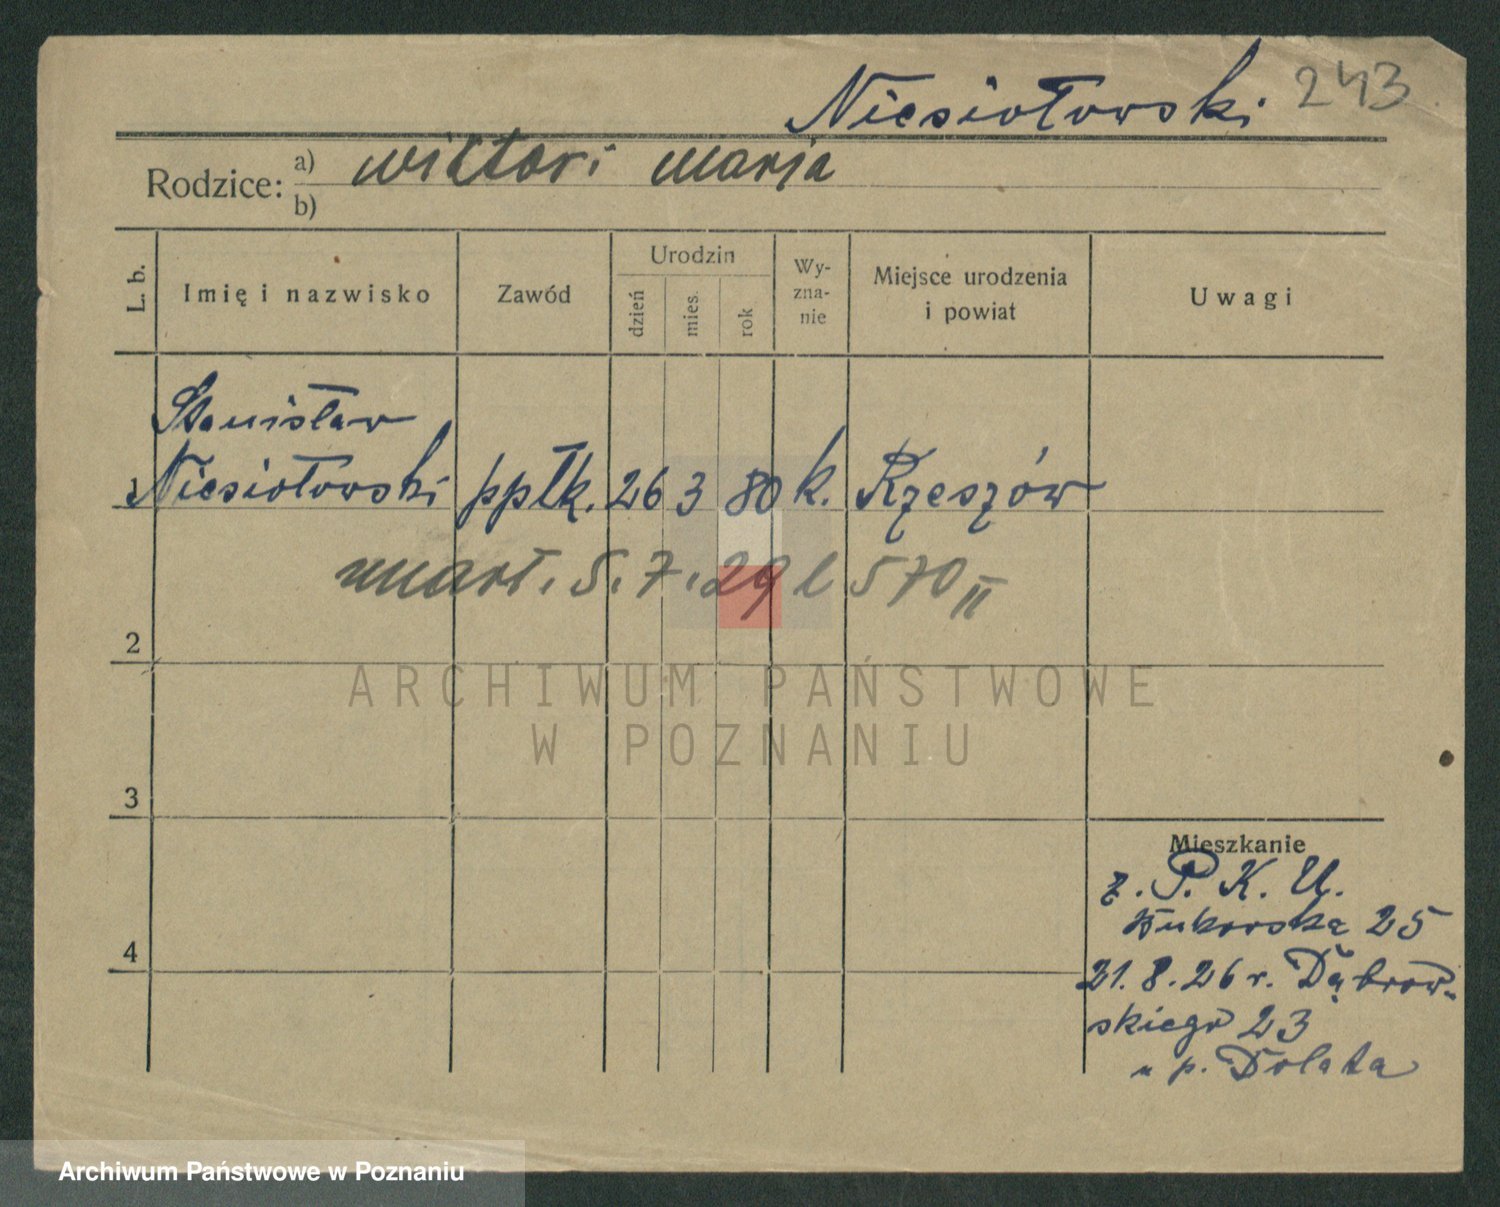 Niesiołowski 243
Rodzice: a) wiktor i marja
b)
L. b.
Imię i nazwisko
Zawód
Urodzin
dzień
mies.
rok
Wy-
zna-
nie
Miejsce urodzenia
i powiat
Uwagi
Stanisław
1 Niesiołowski ppłk. 26 3 80 k. Rzeszów
zmarł. 5.7.29 l 570 II
2
3
4
Mieszkanie
z. P. K. U.
Bukowska 25
21.8.26 r. Dąbrow-
skiego 23
u p. Dolata
ARCHIWUM PAŃSTWOWE
W POZNANIU
Archiwum Państwowe w Poznaniu